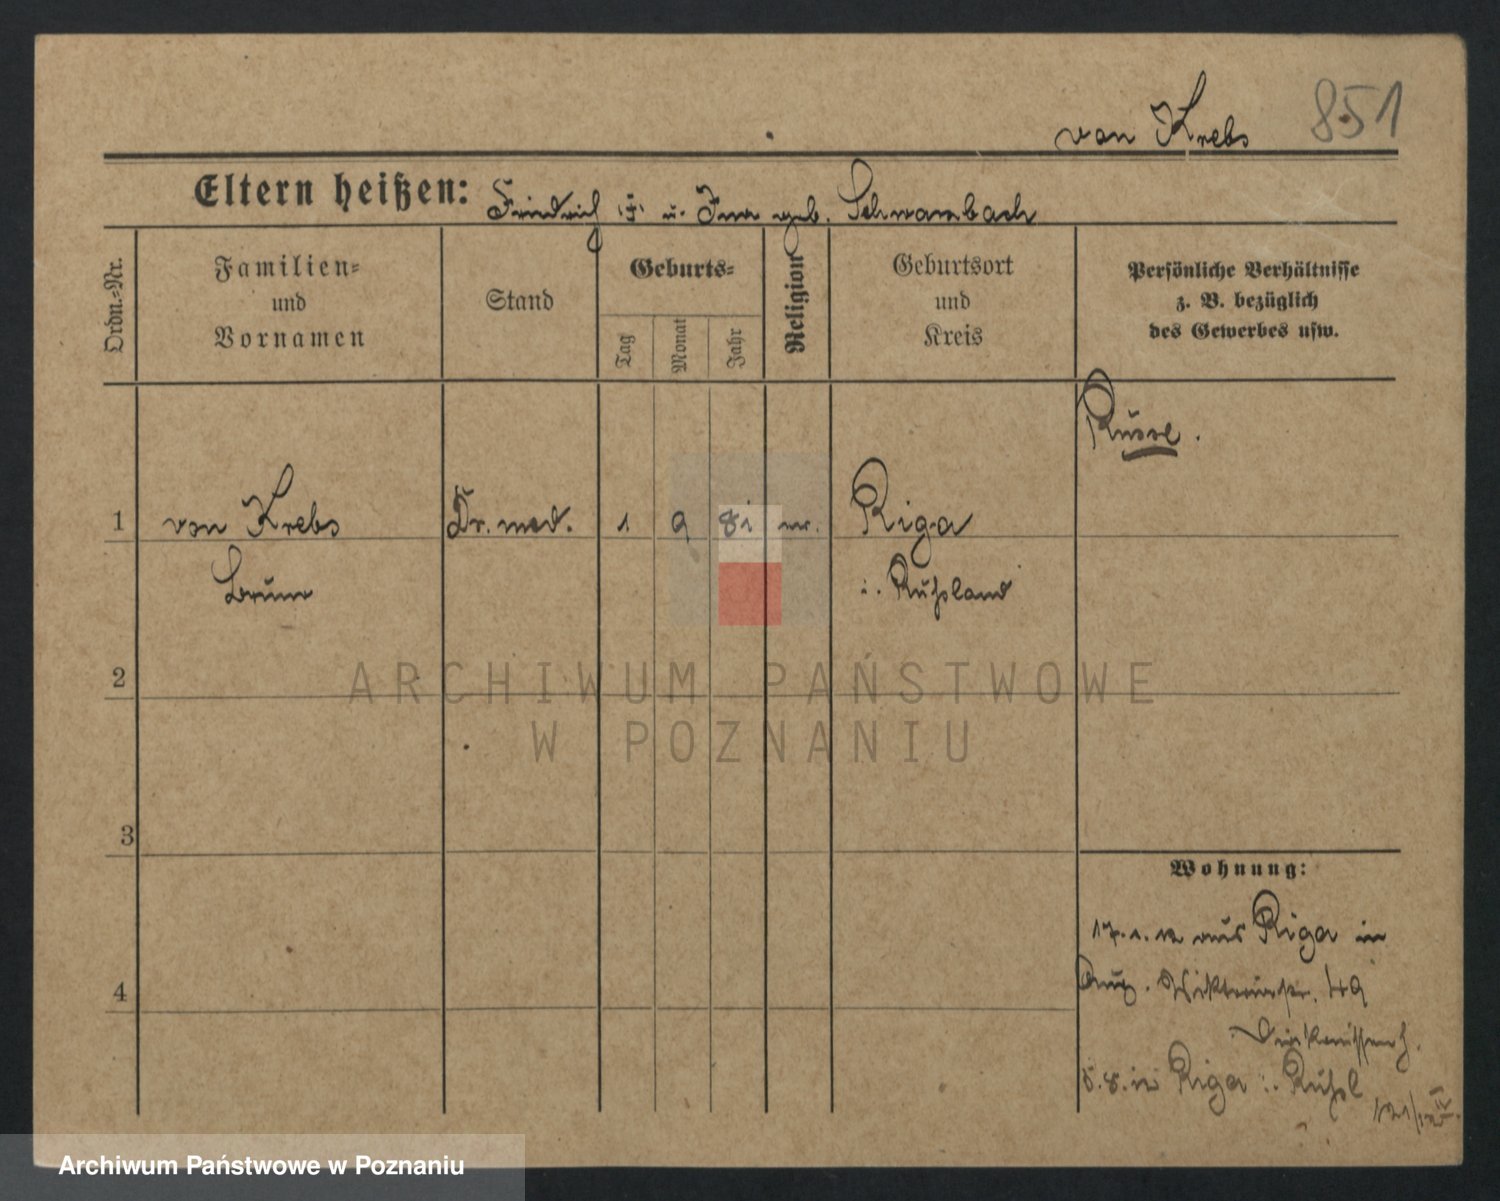 von Krebs 851
Eltern heißen: Friedrich † u. Ina geb. Schwarzbach
Ordn.-Nr.
Familien-
und
Vornamen
Stand
Geburts-
Tag
Monat
Jahr
Religion
Geburtsort
und
Kreis
Persönliche Verhältnisse
z. B. bezüglich
des Gewerbes usw.
Russe.
1 von Krebs Dr. med. 1 9 81 Riga
Bruno i. Rußland
2
ARCHIWUM PAŃSTWOWE
W POZNANIU
3
Wohnung:
17.1.12 aus Riga in
Aug. Viktoriastr. 49
4
Diakonissenh.
Riga i. Rußl
Archiwum Państwowe w Poznaniu